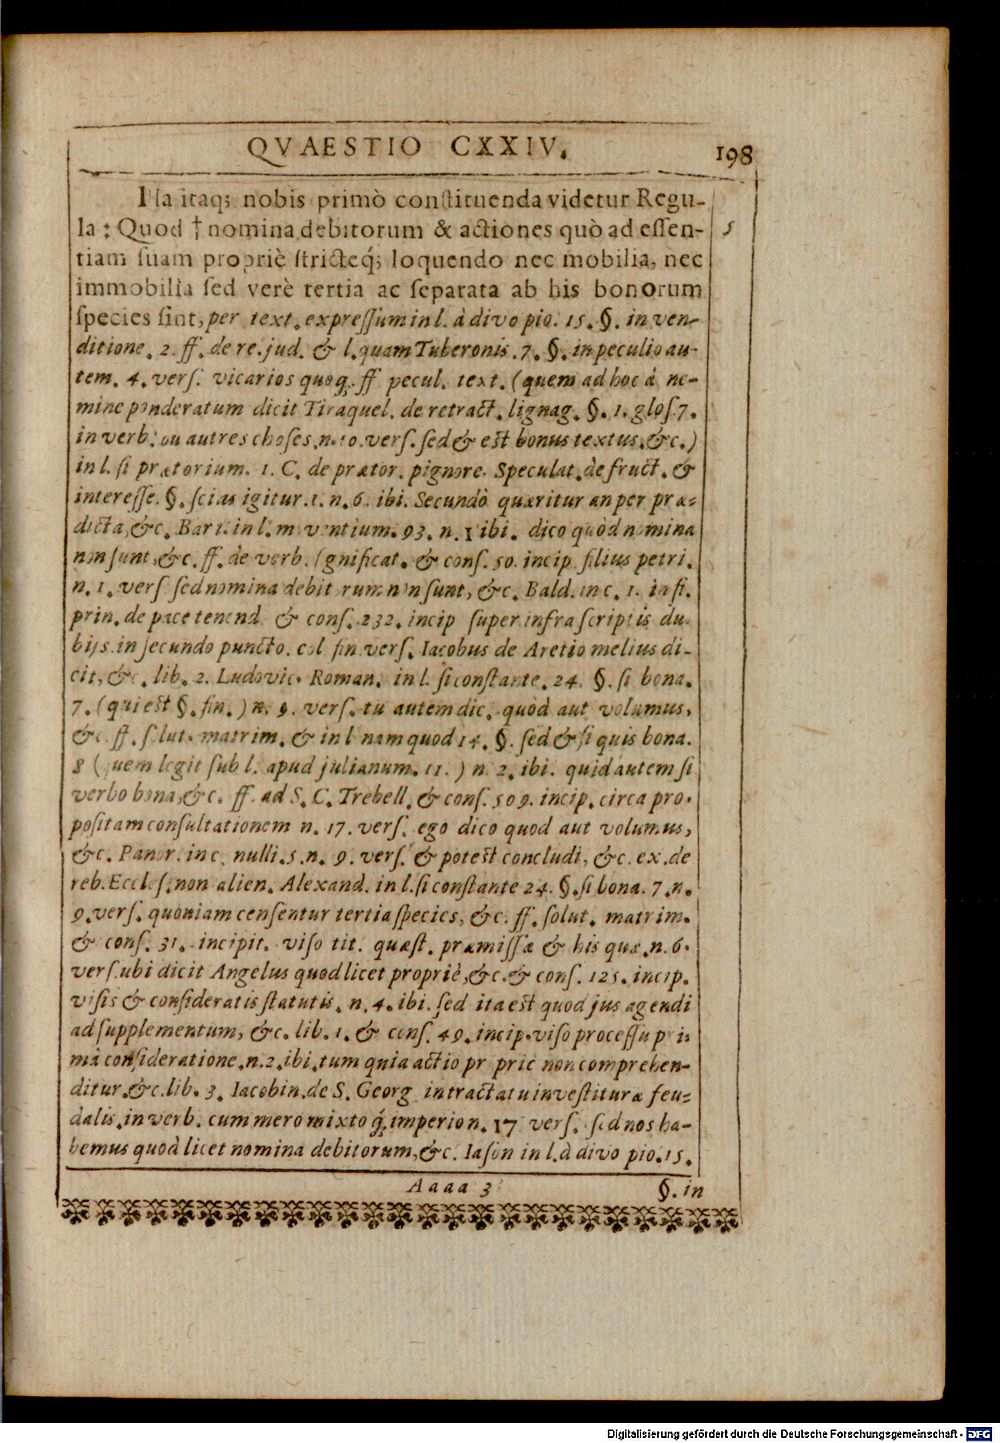 QVAESTIO CXXIV.
198
Illa itaq; nobis primò constituenda videtur Regu-
la : Quod † nomina debitorum & actiones quò ad essen-
5
tiam suam propriè stricteq́; loquendo nec mobilia, nec
immobilia sed verè tertia ac separata ab his bonorum
species sint, per text. expressum in l. à divo pio. 15. §. in ven-
ditione. 2. ff. de re. jud. & l. quam Tuberonis. 7. §. in peculio au-
tem. 4. vers. vicarios quoq́;. ff pecul. text. (quem ad hoc à ne-
mine ponderatum dicit Tiraquel. de retract. lignag. §. 1. glos. 7.
in verb: ou autres choses. n. 10. vers. sed & est bonus textus. &c.)
in l. si prætorium. 1. C. de prætor. pignore. Speculat. de fruct. &
interesse. §. scias igitur. 1. n. 6. ibi. Secundò quæritur an per præ-
dicta, &c. Bart. in l. moventium. 93. n. 1 ibi. dico quòd nomina
non sunt, &c. ff. de verb. significat. & cons. 50. incip. filius petri.
n. 1. vers sed nomina debitorum non sunt, &c. Bald. in c. 1. in fi.
prin. de pace tenend. & cons. 232. incip super infra scriptis du-
bijs. in secundo puncto. col fin. vers. Iacobus de Aretio melius di-
cit, &c. lib. 2. Ludovic. Roman. in l. si constante. 24. §. si bona.
7. (qui est §. fin.) n. 9. vers. tu autem dic. quòd aut volumus,
&c. ff. solut. matrim. & in l nam quod 14. §. sed & si quis bona.
8 (quem legit sub l. apud julianum. 11. ) n. 2. ibi. quid autem si
verbo bona, &c. ff. ad S. C. Trebell. & cons. 509. incip. circa pro-
positam consultationem n. 17. vers. ego dico quod aut volumus,
&c. Panor. in c. nulli. 5. n. 9. vers. & potest concludi, &c. ex. de
reb. Eccles. non alien. Alexand. in l. si constante 24. §. si bona. 7. n.
9. vers. quoniam censentur tertia species, &c. ff. solut. matrim.
& cons. 31. incipit. viso tit. quæst. præmissæ & his quæ. n. 6.
vers. ubi dicit Angelus quod licet propriè, &c. & cons. 125. incip.
visis & consideratis statutis. n. 4. ibi. sed ita est quod jus agendi
ad supplementum, &c. lib. 1. & cons. 49. incip. viso processu pri-
mâ consideratione. n. 2. ibi. tum quia actio proprie non comprehen-
ditur. &c. lib. 3. Iacobin. de S. Georg in tractatu investituræ feu-
dalis. in verb. cum mero mixto q́; imperio n. 17 vers. sed nos ha-
bemus quod licet nomina debitorum, &c. Iason in l. à divo pio. 15.
Aaaa 3
§. in
Digitalisierung gefördert durch die Deutsche Forschungsgemeinschaft - DFG